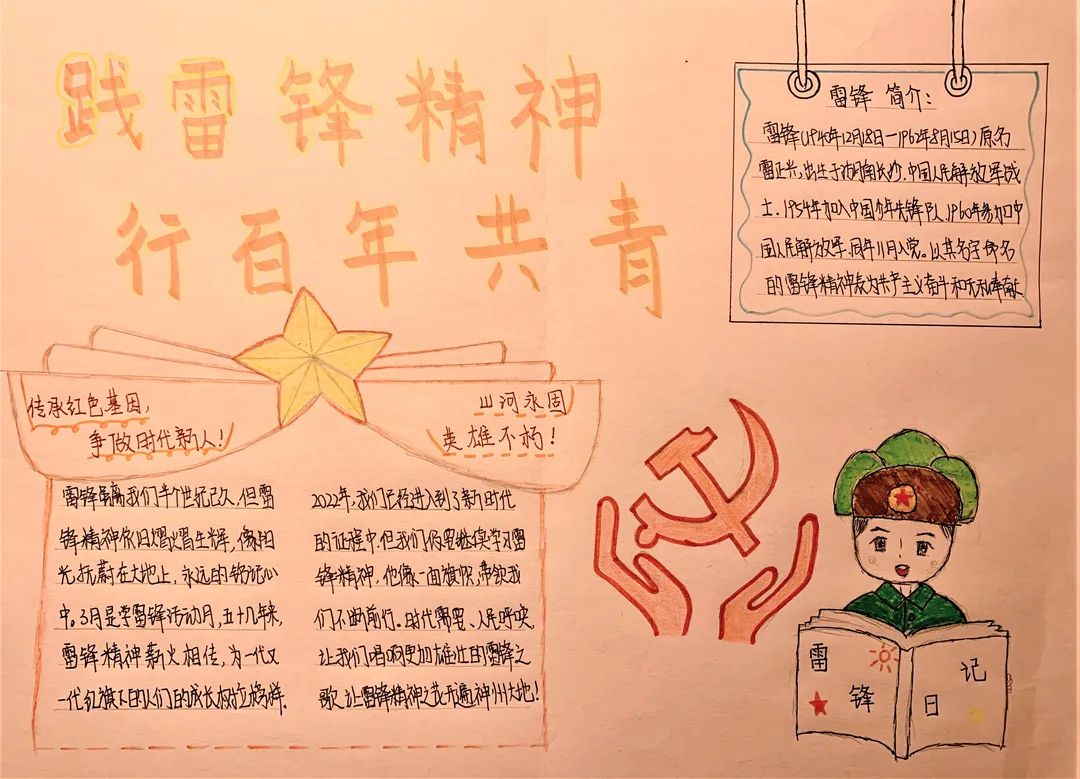 践雷锋精神
行百年共青
雷锋 简介：
雷锋(1940年12月18日—1962年8月15日)原名
雷正兴,出生于湖南长沙.中国人民解放军战
士.1954年加入中国少年先锋队,1960年参加中
国人民解放军.同年11月入党。以其名字命名
的雷锋精神成为共产主义奋斗和无私奉献
传承红色基因,
争做时代新人!
山河永固
英雄不朽!
雷锋虽离我们半个世纪已久,但雷
锋精神依旧熠熠生辉,像阳
光抚蔚在大地上,永远的铭记心
中。3月是学雷锋活动月,五十几年来,
雷锋精神薪火相传,为一代又
一代红旗下的人们的成长树立榜样.
2022年,我们已经进入到了新时代
的征程中.但我们仍需继续学习雷
锋精神,他像一面旗帜,带领我
们不断前行。时代需要、人民呼唤,
让我们唱响更加雄壮的雷锋之
歌,让雷锋精神之花开遍神州大地!
雷锋
日记